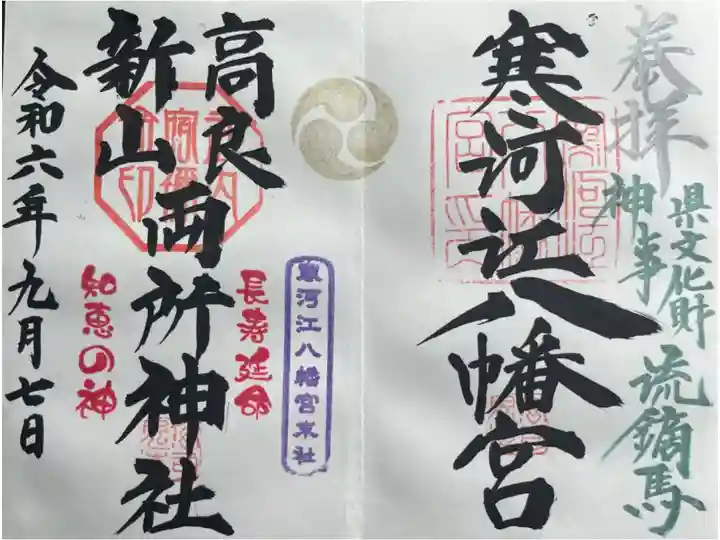 奉拝
県文化財
神事
流鏑馬
寒河江八幡宮
寒河江八幡宮末社
長寿延命
高良
新山
両所神社
知恵の神
令和六年九月七日